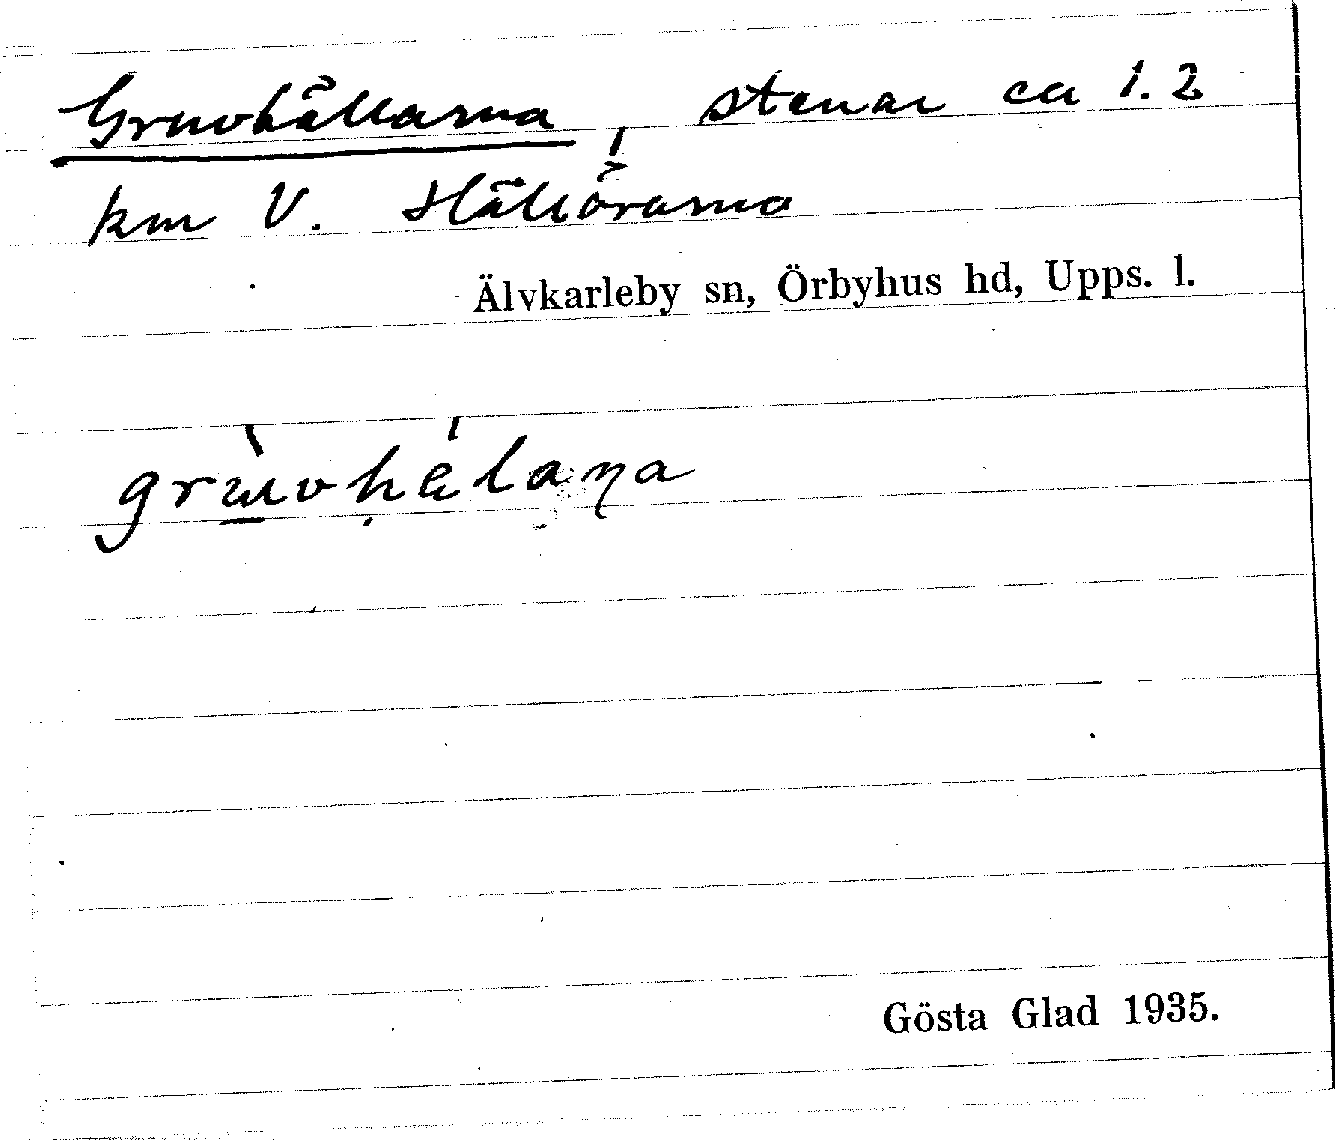 Gruvhällarna, stenar ca 1.2
km V. Hällörarna
Älvkarleby sn, Örbyhus hd, Upps. l.
Gösta Glad 1935.